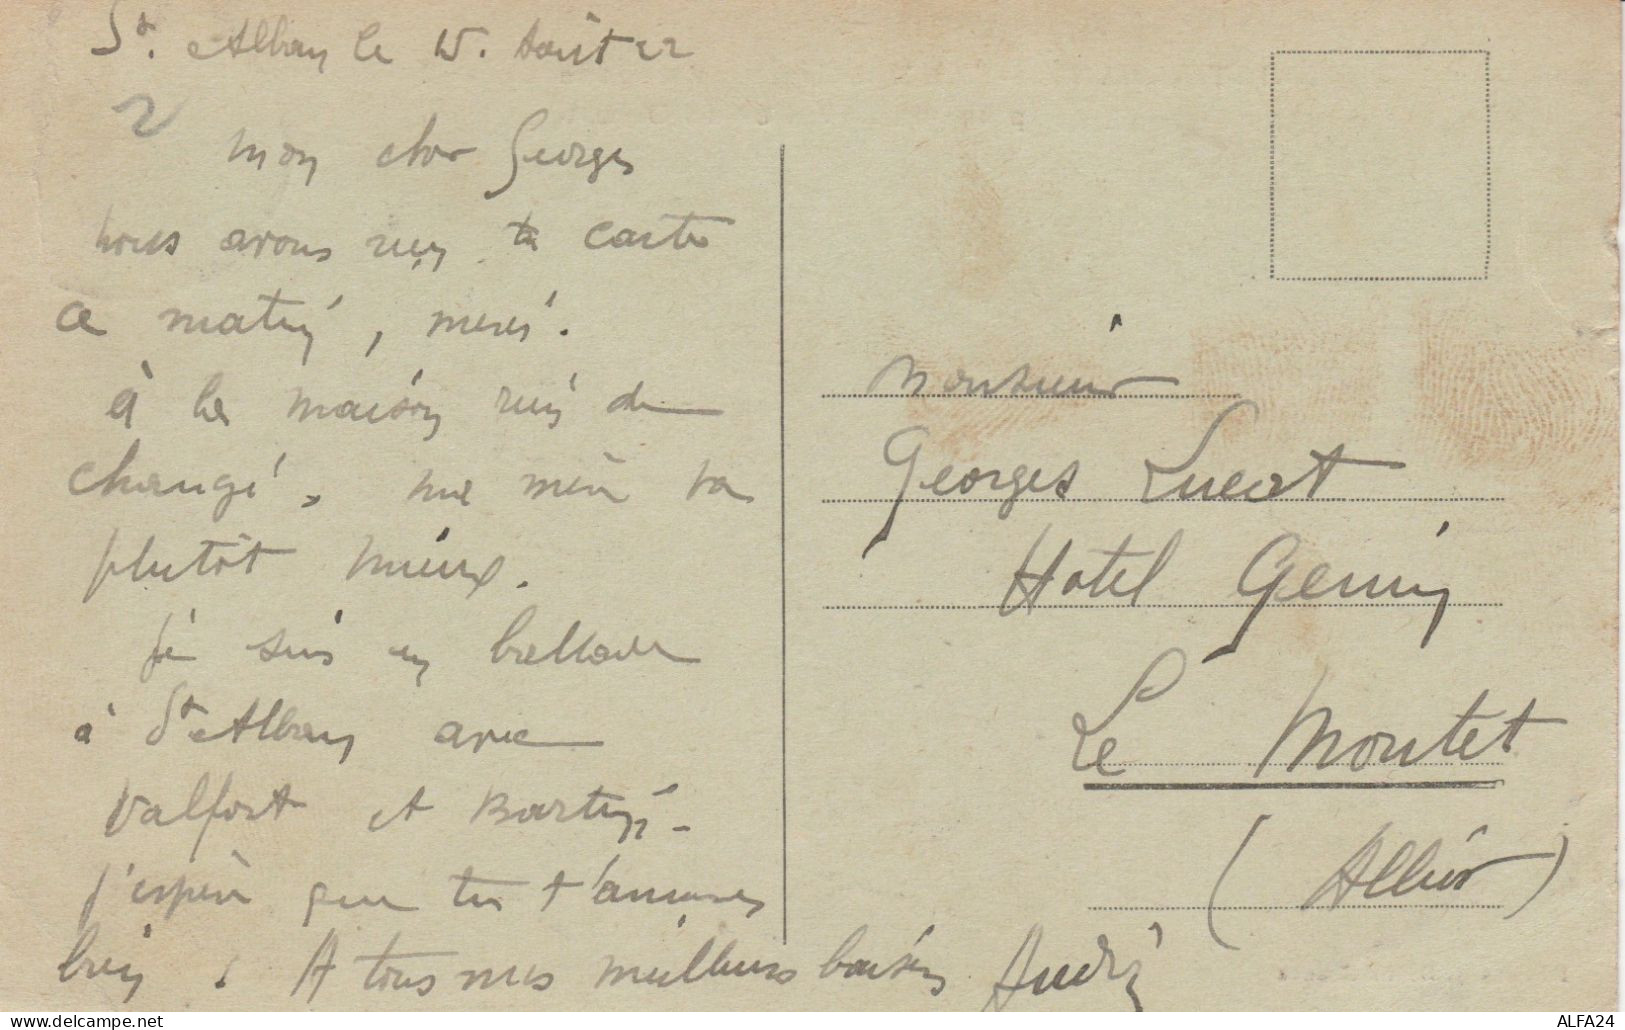 St. Alban le 15. Août 22
2
mon cher Georges
nous avons reçu ta carte
ce matin, merci.
à la maison rien de
changé, ma mère va
plutôt mieux.
je suis en ballade
à St Alban avec
Valfort et
j'espère que tu t'amuses
bien. A tous mes meilleurs baisers André
Monsieur
Georges Lucat
Hotel Genin
Le Montet
(Allier)
ALFA24